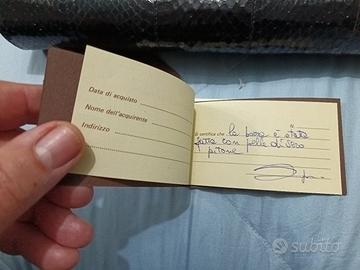 Data di acquisto
Nome dell'acquirente
Indirizzo
N.
Si certifica che la borsa è stata
fatta con pelle di vero
pitone
subito